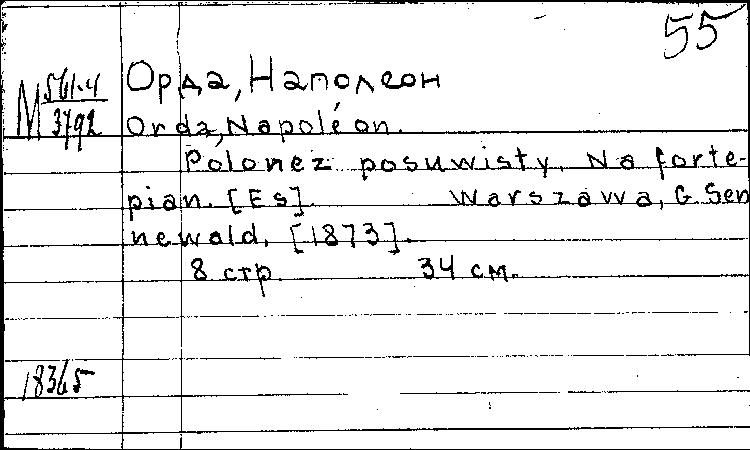 55
М 561-4
3792
Орда, Наполеон
Orda, Napoléon.
Polonez posuwisty. Na forte-
pian. [Es]. Warszawa, G. Sen
newald, [1873].
8 стр. 34 см.
18365